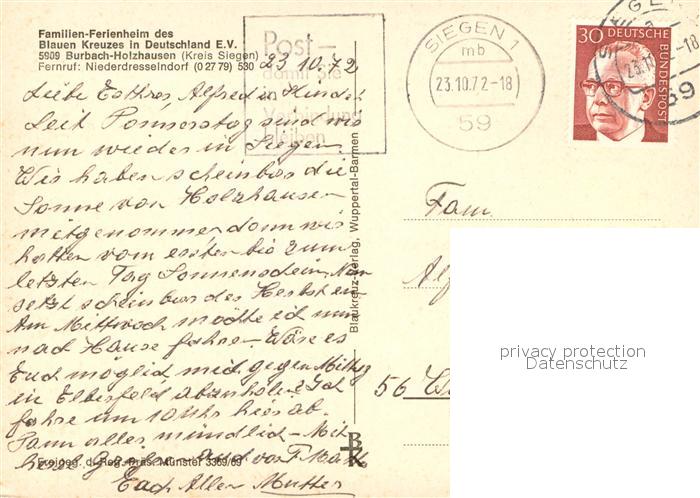 Familien-Ferienheim des
Blauen Kreuzes in Deutschland E.V.
5909 Burbach-Holzhausen (Kreis Siegen)
Fernruf: Niederdresselndorf (02779) 530
Post-
damit Sie
in
Verbindung
bleiben
SIEGEN 1
mb
23.10.72-18
59
30 DEUTSCHE
BUNDESPOST
23.10.72
Liebe Alfred u. Kinder
Seit Donnerstag sind wir
nun wieder in Siegen.
Wir haben scheinbar die
Sonne von Holzhausen
mitgenommen denn wir
hatten vom ersten bis zum
letzten Tag Sonnenschein. Nun
setzt scheinbar der Herbst ein
Am Mittwoch möchte ich nun
nach Hause fahren. Wäre es
Euch möglich mich gegen Mittag
in Elberfeld abzuholen? Ich
fahre um 10 Uhr hier ab.
Dann alles mündlich. Mit
herzl.
Euch Allen Mutter
Freigeg. d. Reg. Präs. Münster 3369/69
Blaukreuz-Verlag, Wuppertal-Barmen
Fam.
56
privacy protection
Datenschutz